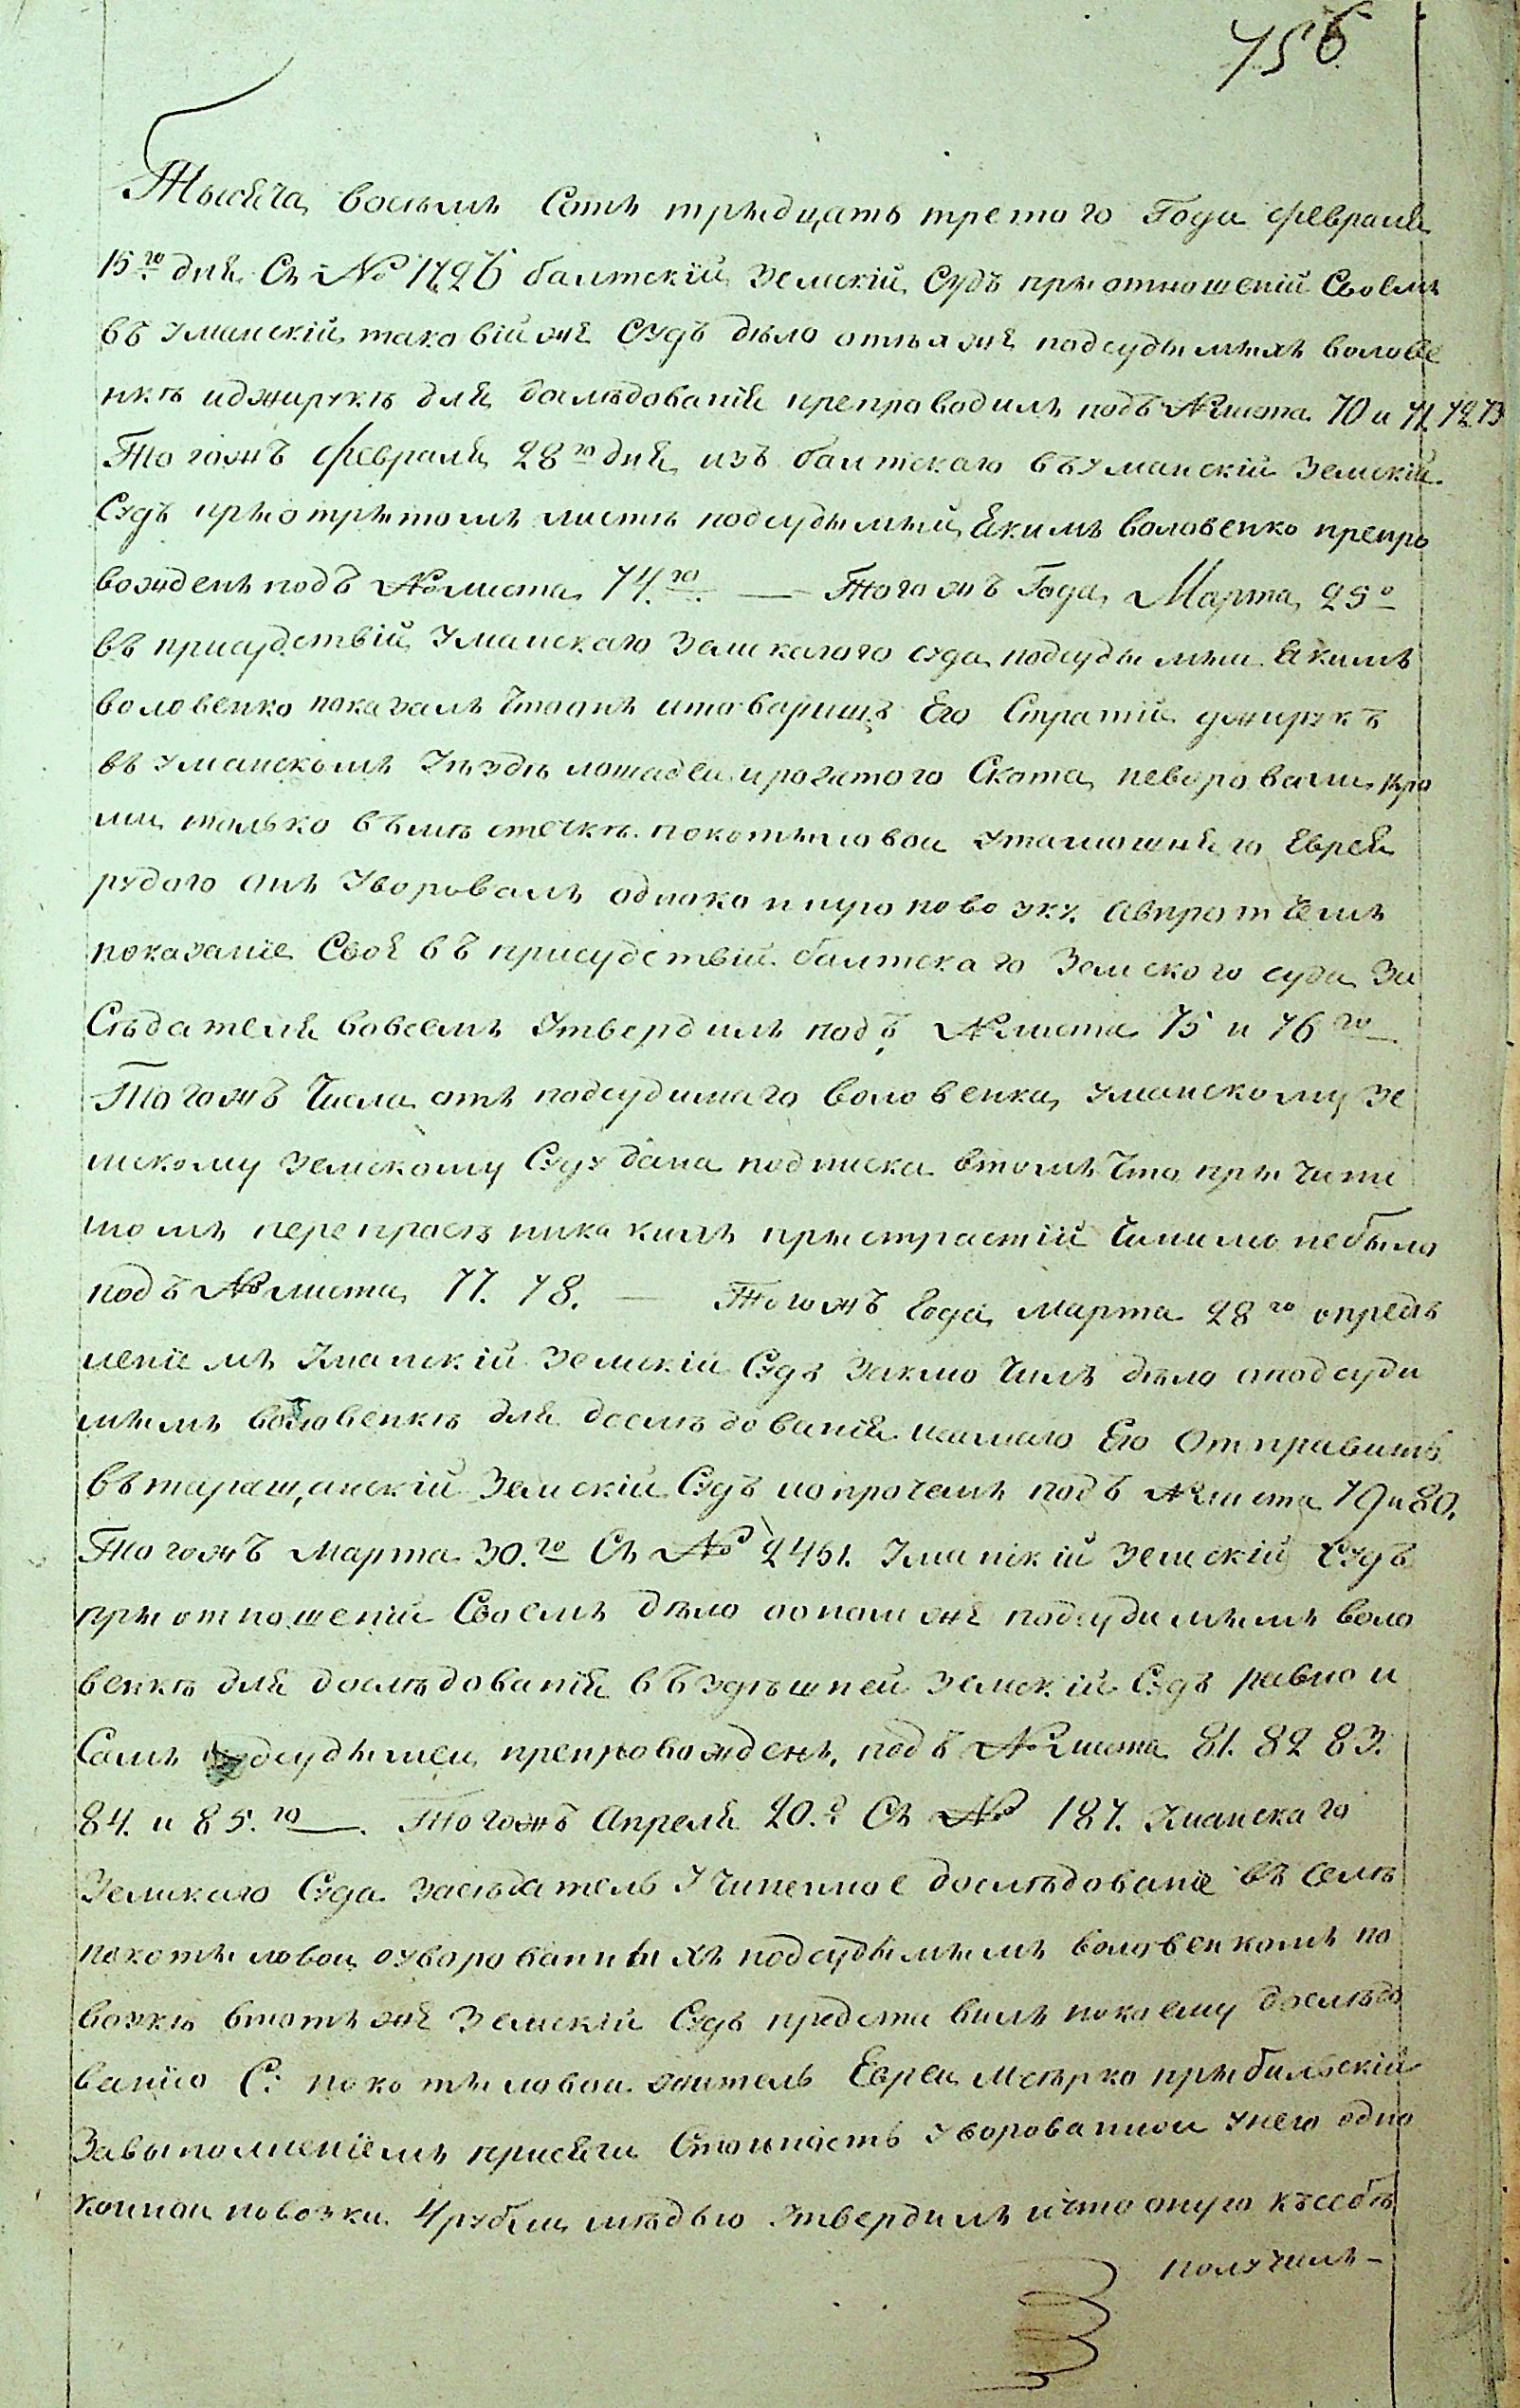 756
Тысяча восемъ Сотъ тридцать третого Года февраля
15го дня Съ № 1726 балтскій Земскій Судъ приотношеній Своемъ
въ Уманскій таковійже Судъ дѣло отѣхже подсудимыхъ волове
нкѣ иджирукѣ для дослѣдованія препроводилъ подъ № листа 70 и 71 72 73
Тогожъ февраля 28го дня изъ балтскаго въуманскій Земскій
Судъ приотрытомъ листѣ подсудимый Якимъ воловенко препро
вожденъ подъ № листа 74.го — Тогожъ Года Марта 25о
въ присудствій Уманскаго Земскаго суда подсудимый Якимъ
воловенко показалъ Чтоонъ итоварищъ Его Стратій джирукъ
въ Уманскомъ Уѣздѣ лошадей ирогатого Скота неворовали кро
ми только въмѣстечкѣ покотиловои утамошняго Еврея
рудого онъ Уворовалъ одноконную повозку Авпротчемъ
показаніе Своё въ присудствій балтскаго Земского суда За
Сѣдателя вовсемъ Утвердилъ подъ № листа 75 и 76го
Тогожъ Числа отъ подсудимаго воловенка Уманскому Зе
мскому Земскому Суду дана подписка втомъ Что при Чине
томъ перепросѣ никакихъ пристрастій Чинимо небыло
подъ № листа 77. 78. — Тогожъ Года Марта 28го опредѣ
леніемъ Уманскій Земскій Судъ Заключилъ дѣло оподсуди
мымъ воловенкѣ для дослѣдованія исамаго Его Отправить
въ таращанскій Земскій Судъ ипрочемъ подъ № листа 79 и 80.
Тогожъ Марта 30.го Съ № 2451. Уманскій Земскій Судъ
приотношеній Своемъ дѣло оономже подсудимымъ воло
венкѣ для дослѣдованія въздѣшней Земскій Судъ равно и
Самъ подсудимеи препровожденъ, подъ № листа 81. 82 83.
84. и 85.го — Тогожъ Апреля 20.о Съ № 187. Уманскаго
Земскаго Суда засѣдатель Учиненное дослѣдованіе въ Селѣ
покотиловои оуворованныхъ подсудимымъ воловенкомъ по
возкѣ втотъже Земскій Судъ представилъ покоему дослѣдо
ванію С: покотиловои житель Евреи Мошко прибильскій
Завыполненіемъ присяги Стоиность Уворованнои Унего одно
коннои повозки 4 рубли мѣдью Утвердилъ ичто оную ксебѣ
получилъ —